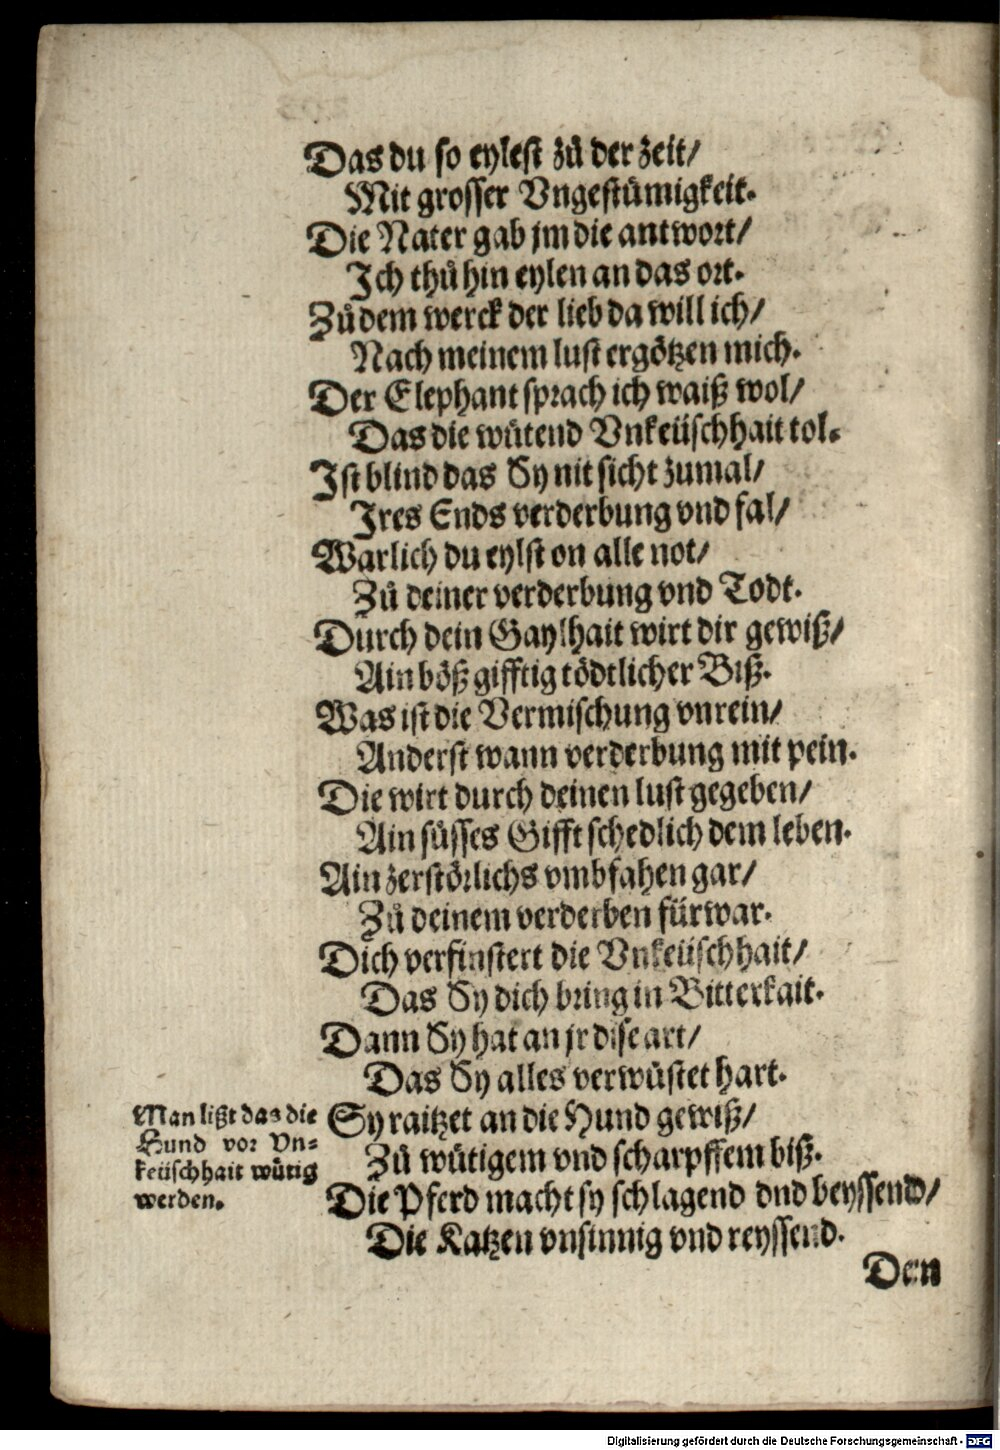 Das du so eylest zů der zeit/
Mit grosser Vngestümigkeit.
Die Nater gab jm die antwort/
Ich thů hin eylen an das ort.
Zů dem werck der lieb da will ich/
Nach meinem lust ergötzen mich.
Der Elephant sprach ich waiß wol/
Das die wůtend Vnkeüschhait tol.
Ist blind das Sy nit sicht zumal/
Ires Ends verderbung vnd fal/
Warlich du eylst on alle not/
Zů deiner verderbung vnd Todt.
Durch dein Gaylhait wirt dir gewiß/
Ain böß gifftig tödtlicher Biß.
Was ist die Vermischung vnrein/
Anderst wann verderbung mit pein.
Die wirt durch deinen lust gegeben/
Ain süsses Gifft schedlich dem leben.
Ain zerstörlichs vmbfahen gar/
Zů deinem verderben fürwar.
Dich verfinstert die Vnkeüschhait/
Das Sy dich bring in Bitterkait.
Dann Sy hat an jr dise art/
Das Sy alles verwüstet hart.
Man lißt das die
Hund vor Vn-
keüschhait wütig
werden.
Sy raitzet an die Hund gewiß/
Zů wütigem vnd scharpffem biß.
Die Pferd macht sy schlagend dnd beyssend/
Die Katzen vnsinnig vnd reyssend.
Den
Digitalisierung gefördert durch die Deutsche Forschungsgemeinschaft - DFG